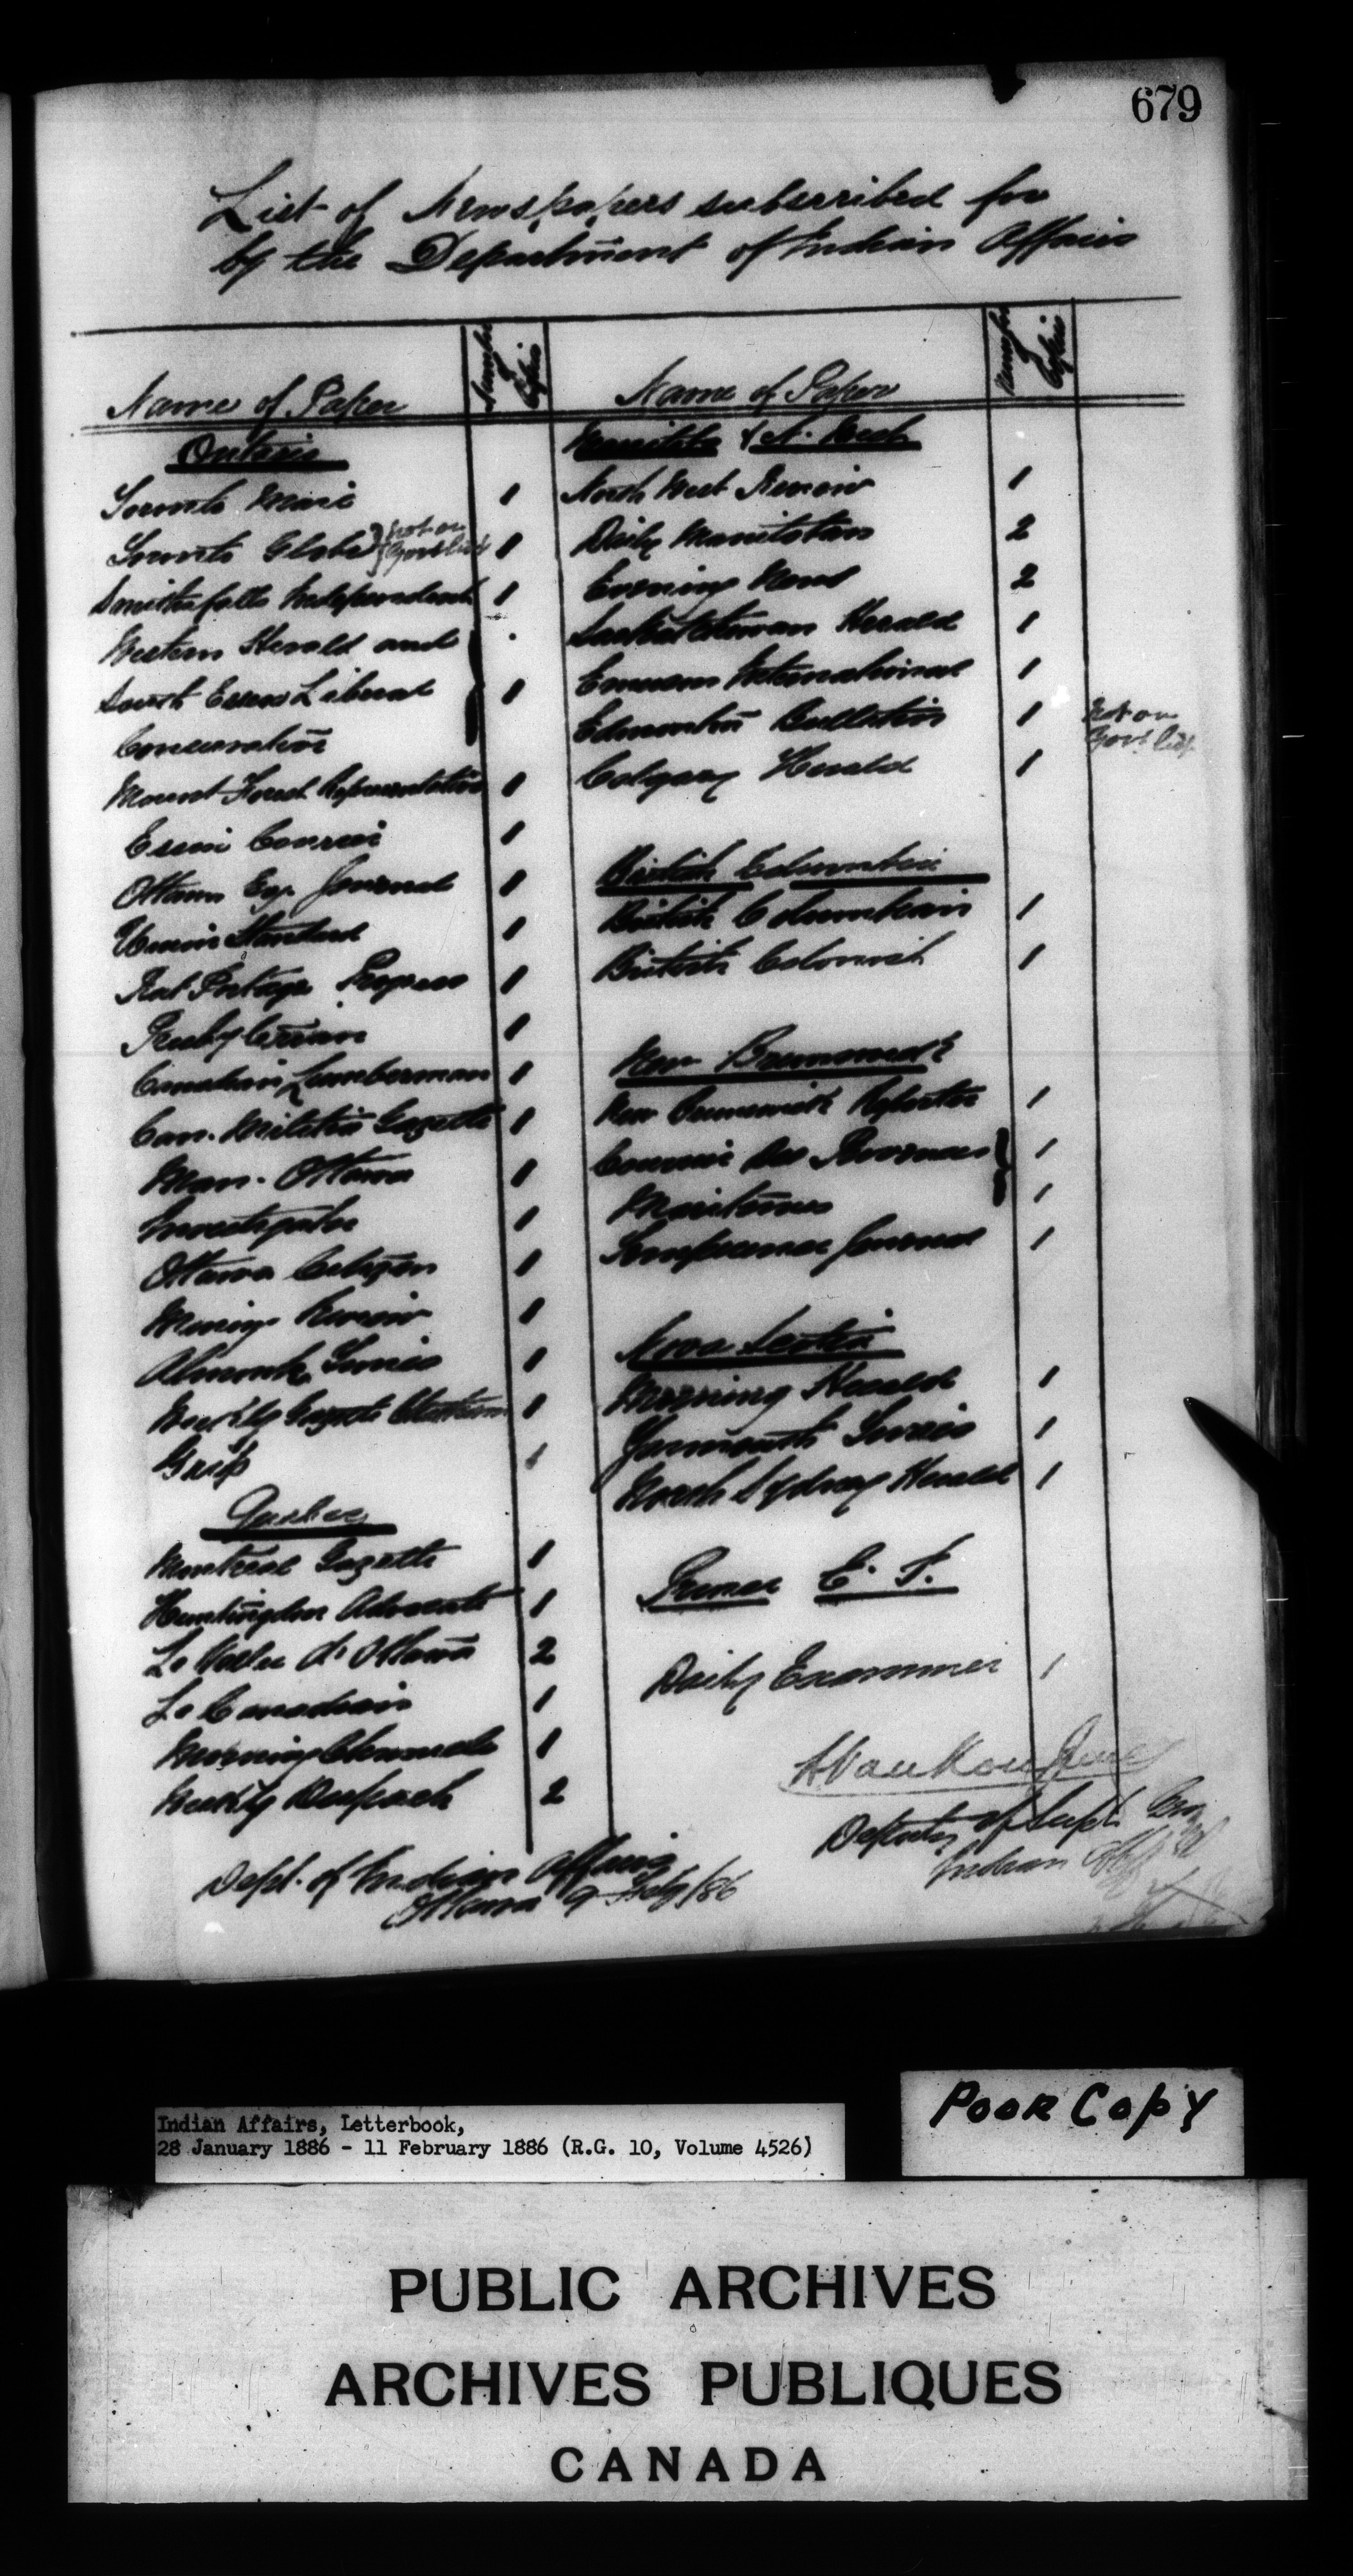 679
List of Newspapers subscribed for
by the Department of Indian Affairs
Name of Paper
Number of Copies
Name of Paper
Number of Copies
Ontario
Toronto Mail 1
Toronto Globe } not on Govt list 1
Smithsfalls Independent 1
Western Herald and
South Essex Liberal 1
Conservative
Mount Forest Representative 1
Essex Courier 1
Ottawa Eg. Journal 1
Standard 1
Rat Portage Progress 1
Presbyterian 1
Canadian Lumberman 1
Can. Militia Gazette 1
Man. Ottawa 1
Investigator 1
Ottawa Citizen 1
Mining Review 1
Almonte Times 1
Weekly Gazette 1
Grip 1
Quebec
Montreal Gazette 1
Huntingdon Advocate 1
La Vallee d'Ottawa 2
Le Canadien 1
Morning Chronicle 1
Weekly Despach 2
Manitoba & N. West
North West Review 1
Daily Manitoban 2
Evening News 2
Saskatchewan Herald 1
Emerson International 1
Edmonton Bulletin 1 Not on Govt list
Calgary Herald 1
British Columbia
British Columbian 1
British Colonist 1
New Brunswick
New Brunswick Reporter 1
Courrier des Provinces } 1
Maritimes 1
Temperance Journal 1
Nova Scotia
Morning Herald 1
Yarmouth Times 1
North Sydney Herald 1
Prince E. I.
Daily Examiner 1
L VanKoughnet
Deputy of Supt. Gen
Indian Aff
Dept. of Indian Affairs
Ottawa 9 Feby/86
Poor Copy
Indian Affairs, Letterbook,
28 January 1886 - 11 February 1886 (R.G. 10, Volume 4526)
PUBLIC ARCHIVES
ARCHIVES PUBLIQUES
CANADA